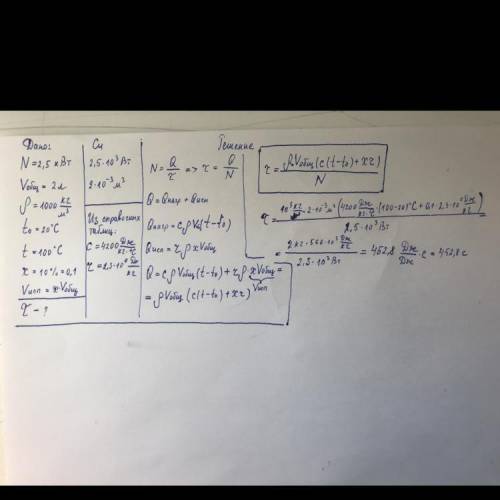 Дано:
N = 2,5 кВт
Vобщ = 2л
ρ = 1000 кг/м³
t₀ = 20°C
t = 100°C
x = 10% = 0,1
Vисп = xVобщ
τ - ?
Си
2,5·10³ Вт
2·10⁻³ м³
Из справочных
таблиц:
c = 4200 Дж/кг·°C
r = 2,3·10⁶ Дж/кг
Решение
N = Q/τ => τ = Q/N
Q = Qнагр + Qисп
Qнагр = cρV₀(t-t₀)
Qисп = rρxVобщ
Q = cρVобщ(t-t₀) + rρ·xVобщ =
Vисп
= ρVобщ(c(t-t₀)+xr)
τ = ρVобщ(c(t-t₀)+xr)/N
τ = 10³ кг/м³·2·10⁻³м³(4200 Дж/кг·°C(100-20)°C+0,1·2,3·10⁶ Дж/кг)/2,5·10³Вт =
= 2кг·566·10³ Дж/кг/2,5·10³Вт = 452,8 Дж/Дж·с = 452,8 с